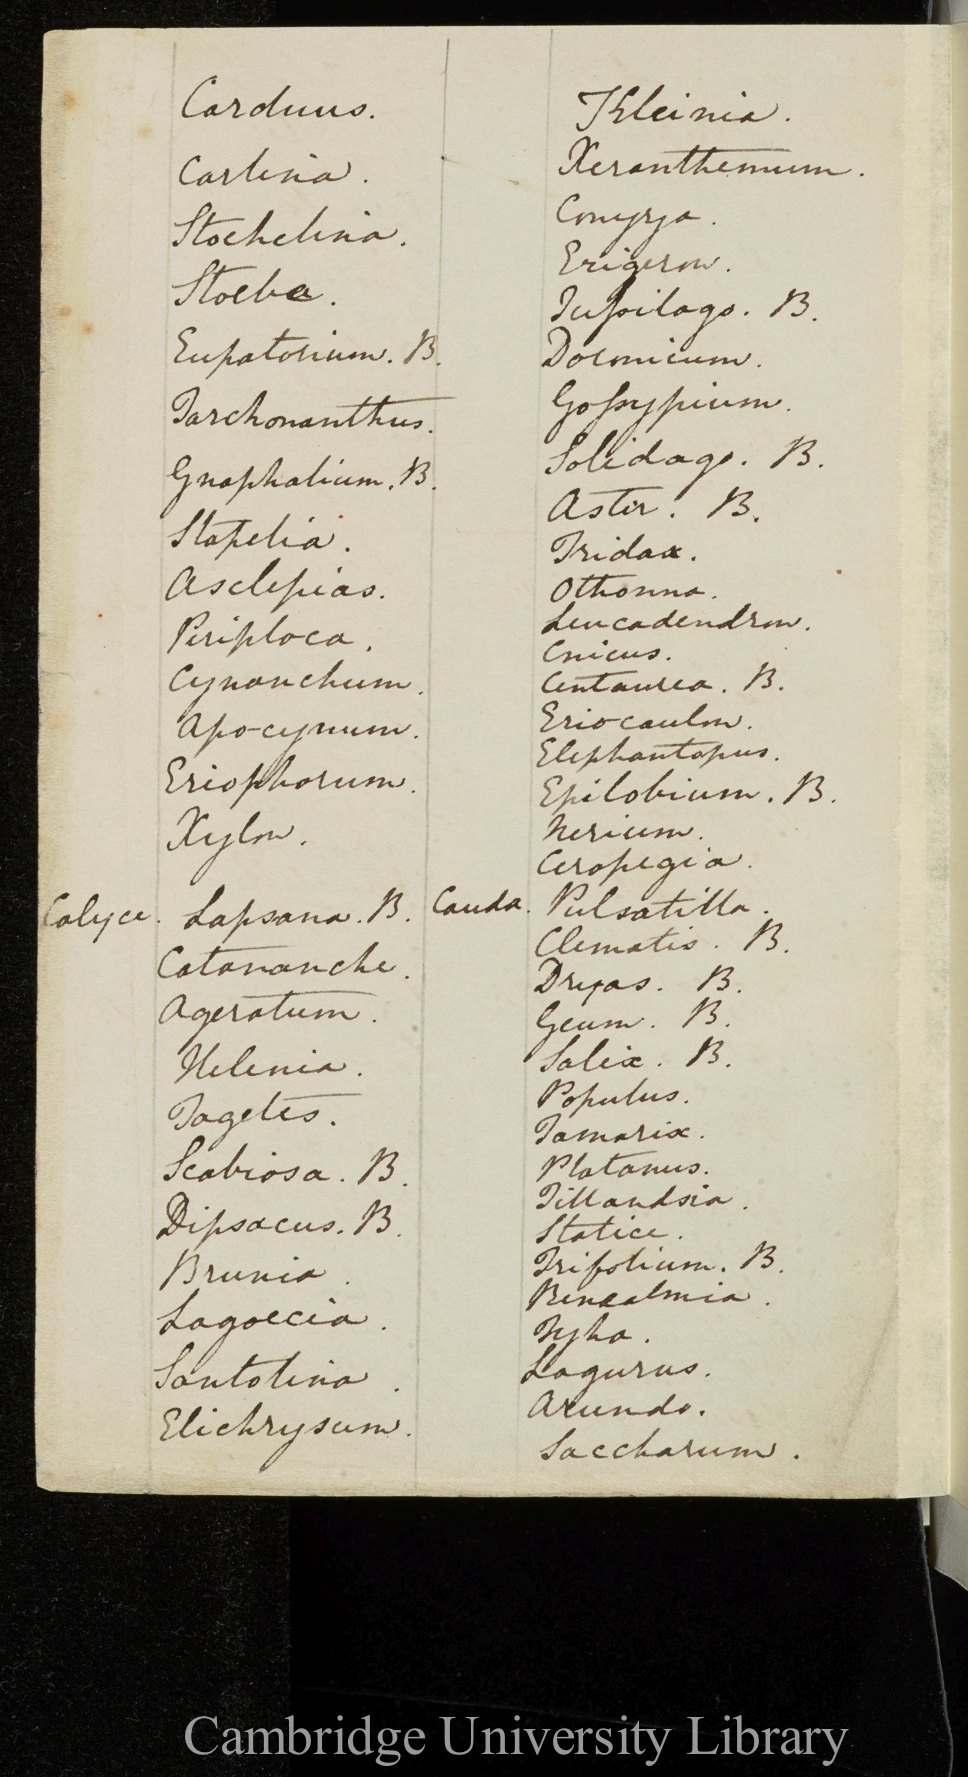 Carduus.
Carlina.
Stoehelina.
Stoebe.
Eupatorium. B.
Tarchonanthus.
Gnaphalium. B.
Stapelia.
Asclepias.
Periploca.
Cynanchum.
Apocynum.
Eriophorum.
Xylon.
Calyce. Lapsana. B.
Catananche.
Ageratum.
Helenia.
Tagetes.
Scabiosa. B.
Dipsacus. B.
Brunia.
Lagoecia.
Santolina.
Elichrysum.
Kleinia.
Xeranthemum.
Conyza.
Erigeron.
Tussilago. B.
Doronicum.
Gossypium.
Solidago. B.
Aster. B.
Tridax.
Othonna.
Leucadendron.
Cnicus.
Centaurea. B.
Eriocaulon.
Elephantopus.
Epilobium. B.
Nerium.
Ceropegia.
Cauda. Pulsatilla.
Clematis. B.
Dryas. B.
Geum. B.
Salix. B.
Populus.
Tamarix.
Platanus.
Tillandsia.
Statice.
Trifolium. B.
Renealmia.
Typha.
Lagurus.
Arundo.
Saccharum.
Cambridge University Library